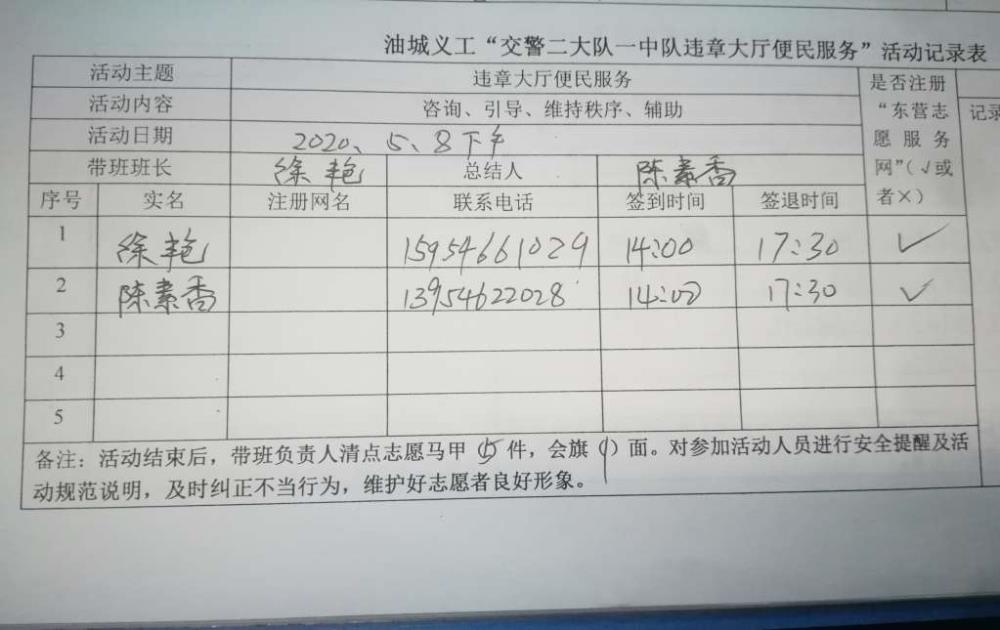 油城义工“交警二大队一中队违章大厅便民服务”活动记录表
活动主题 违章大厅便民服务 是否注册“东营志愿服务网”(√或者×)
活动内容 咨询、引导、维持秩序、辅助
活动日期 2020、5、8下午
带班班长 徐艳 总结人 陈素香
序号 实名 注册网名 联系电话 签到时间 签退时间
1 徐艳 15954661029 14:00 17:30 ✓
2 陈素香 13954622028 14:00 17:30 ✓
3
4
5
备注：活动结束后，带班负责人清点志愿马甲(5)件，会旗(1)面。对参加活动人员进行安全提醒及活
动规范说明，及时纠正不当行为，维护好志愿者良好形象。
记录